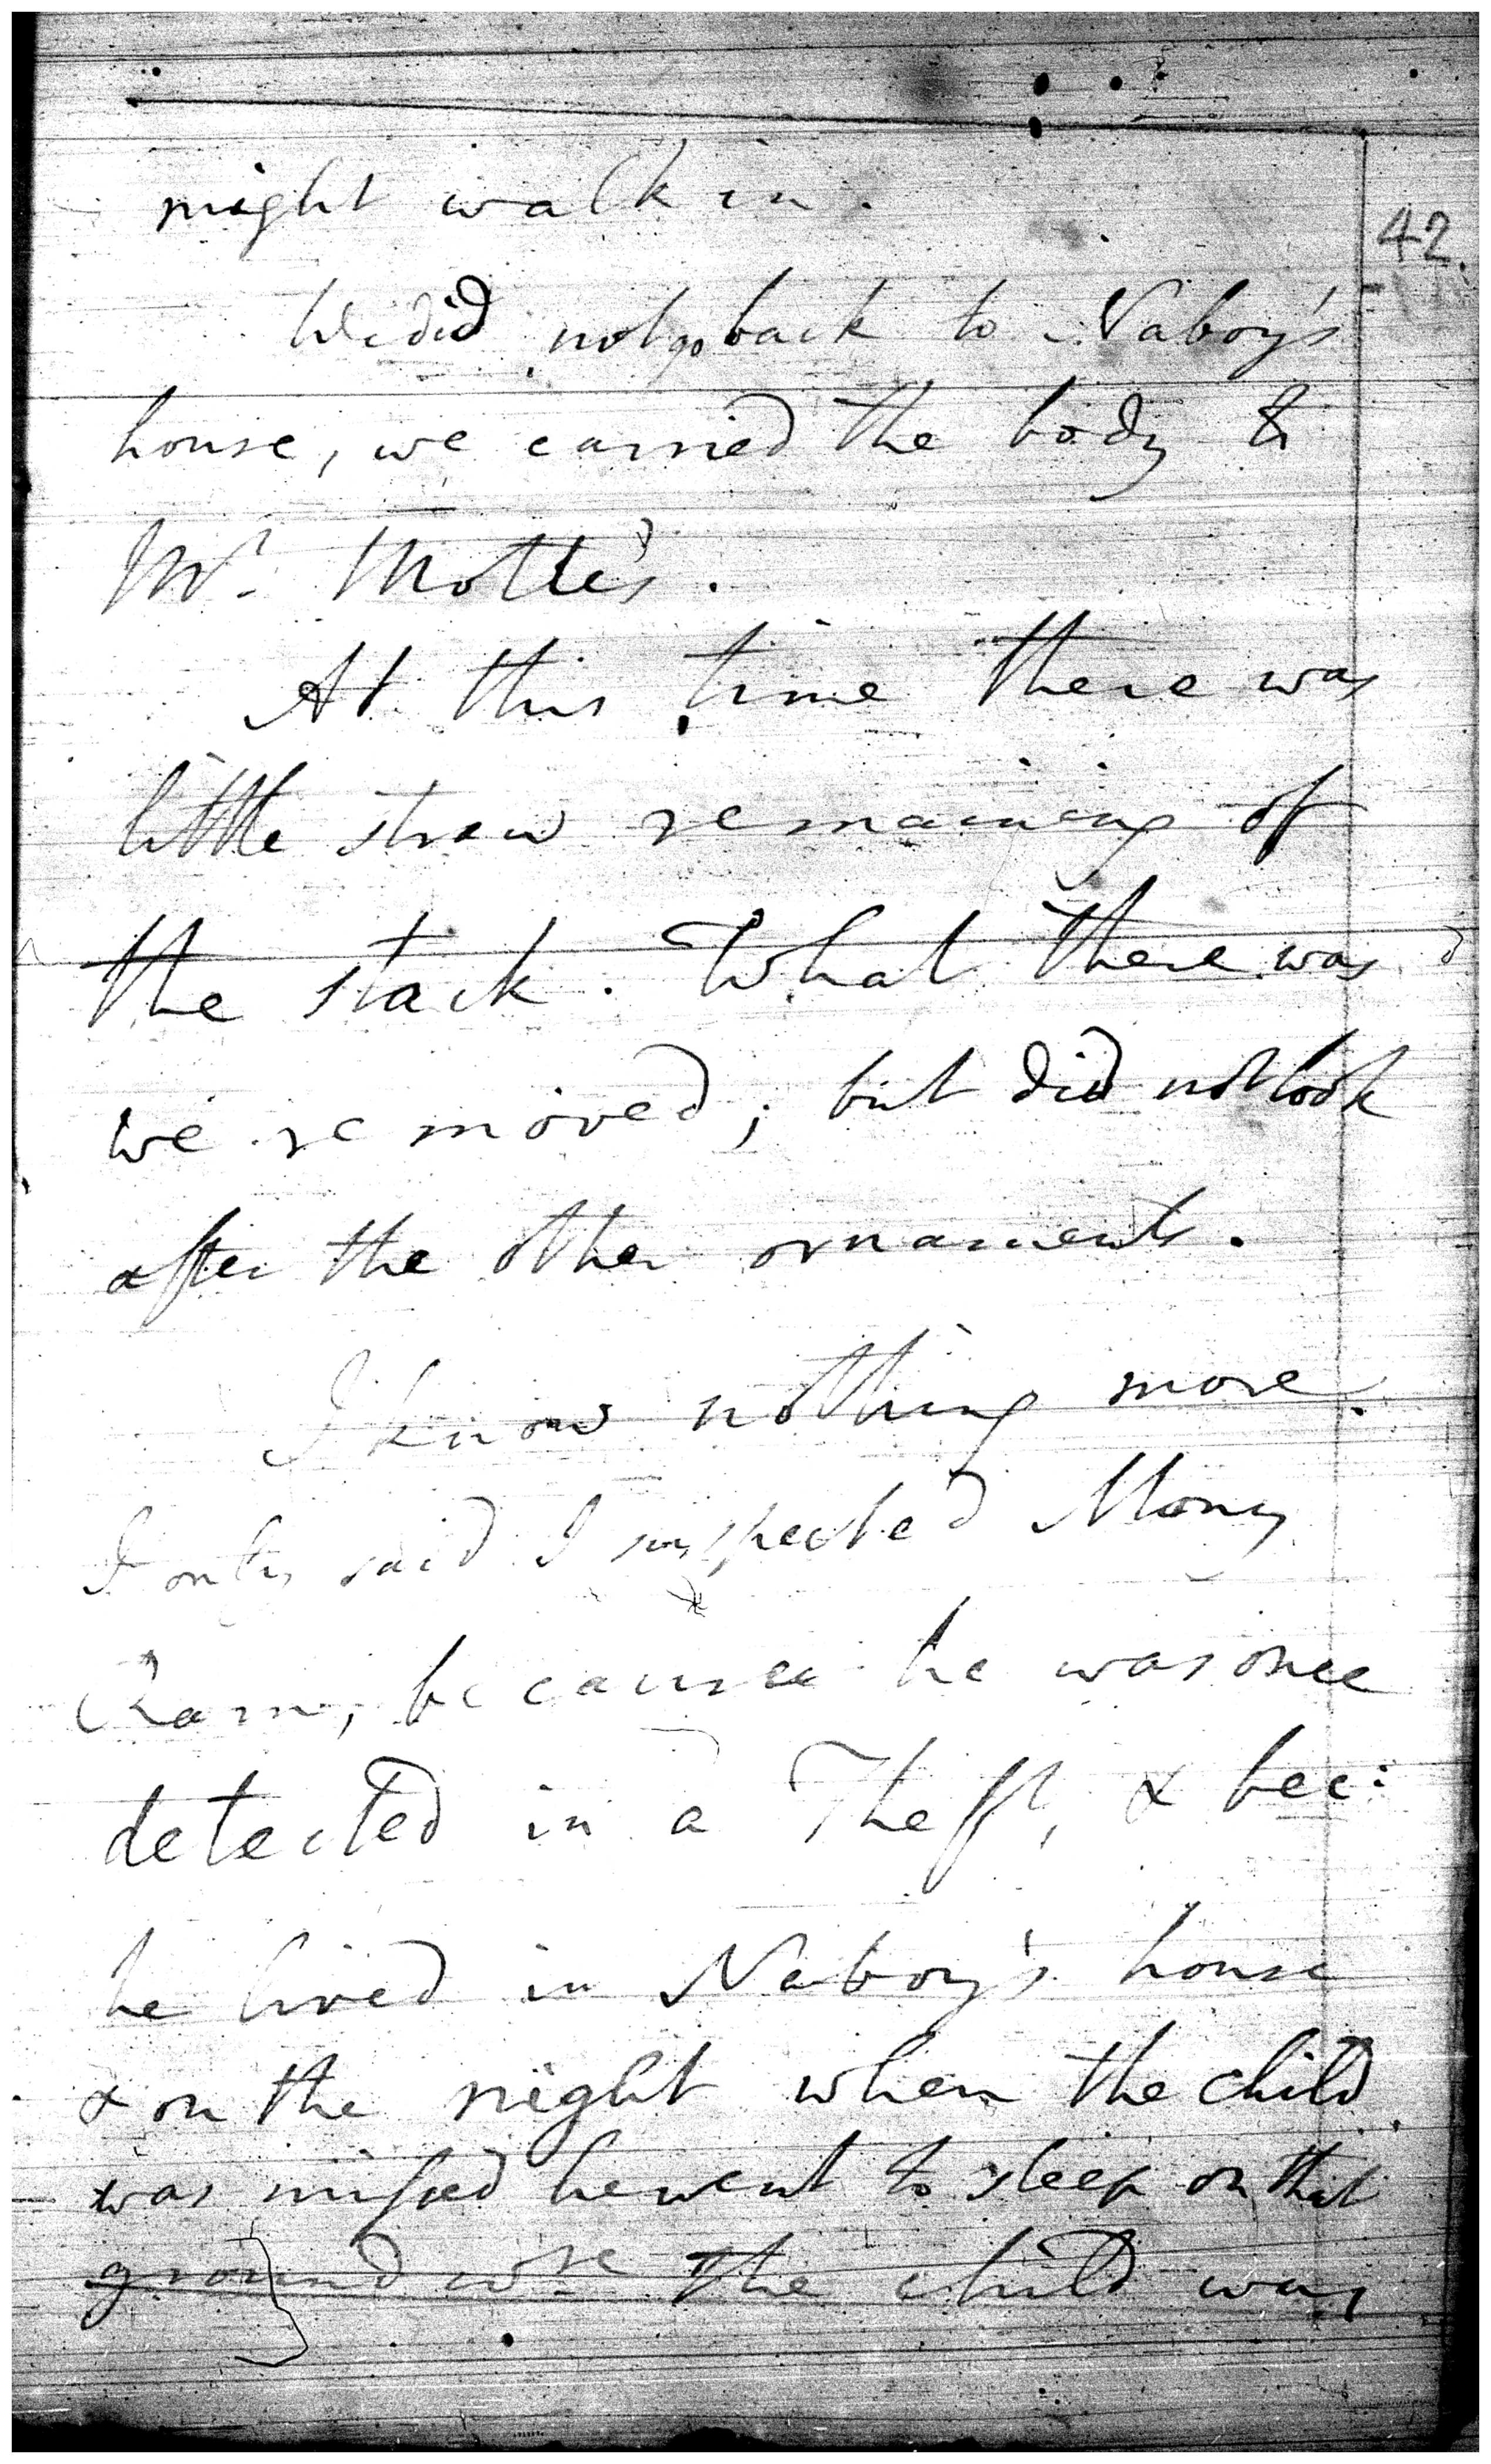 might walk in.
42.
We did not go back to Naboy's
house, we carried the body to
Mr. Motte's.
At this time there was
little straw remaining of
the stack. What there was
we removed; but did not look
after the other ornaments.
I know nothing more.
I only said I suspected Mony
Ram, because he was once
detected in a Theft, & bec:
he lived in Naboy's house
& on the night when the child
was missed he went to sleep on that
ground whre the child was